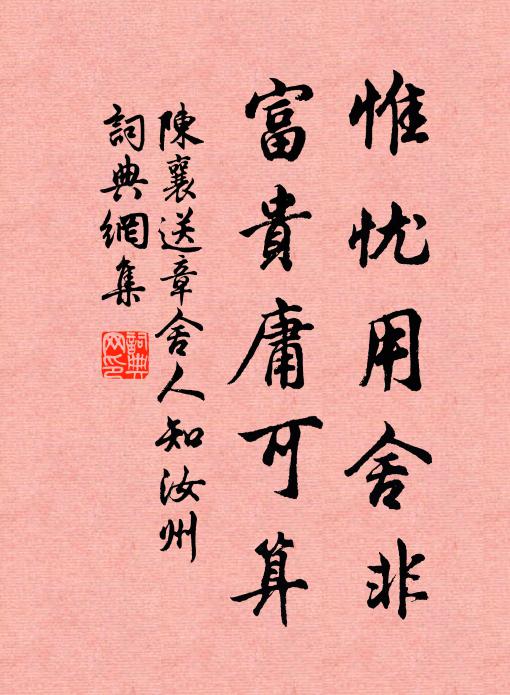 惟忧用舍非
富貴庸可算
陳襄送章舍人知汝州
詞典網集
詞典网印